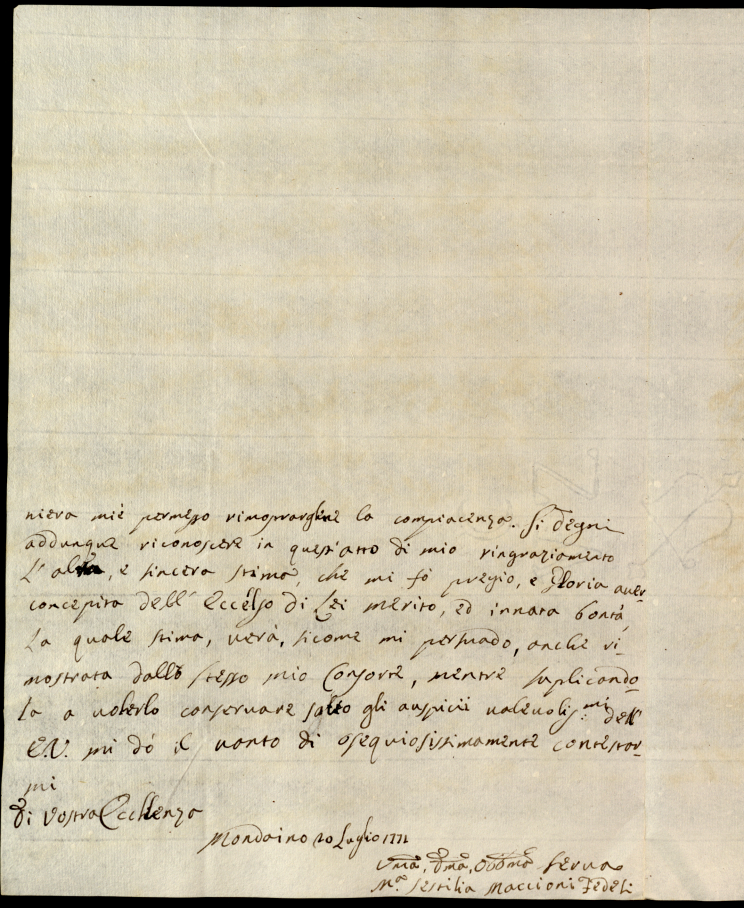 niera mie permesso rimoprarglene la compiacenza. Si degni
addunque riconoscere in quest'atto di mio ringraziamento
L'alta, e sincera stima, che mi fò pregio, e Gloria aver
concepita dell' Eccelso di Lei merito, ed innata bontà,
La quale stima, verà, sicome mi persuado, anche ri-
mostrata dallo stesso mio Consorte, mentre suplicando-
La a volerlo conservare sotto gli auspicii valevolis:mi dell'
E.V. mi dó il vanto di osequiosissimamente contestar-
mi
Di Vostra Eccllenza
Mondaino 20 Luglio 1771
Uma, Dma, Obbma Serva
Ma. Sestilia Maccioni Fedeli